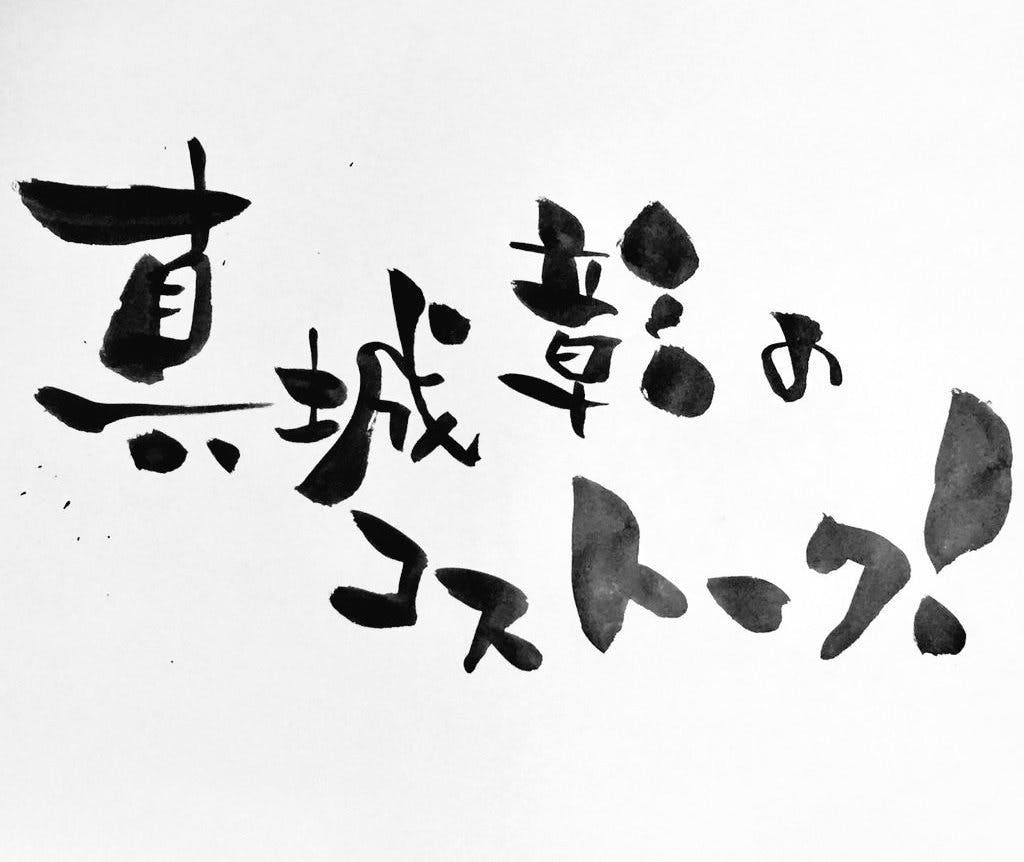 真城彰の
コストーク!